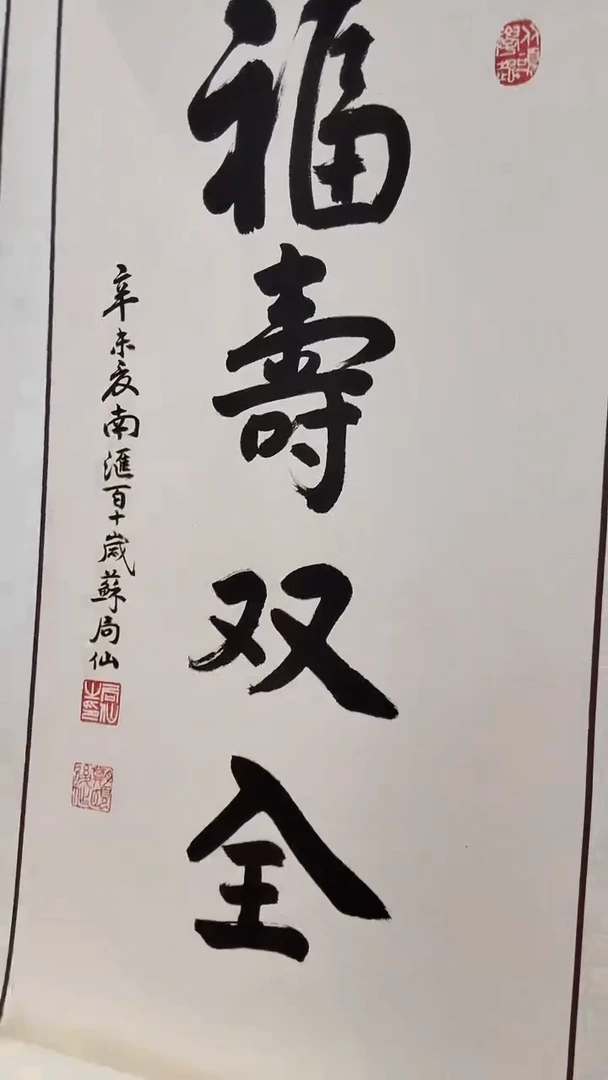 福壽双全
辛未夏南滙百十歲蘇局仙